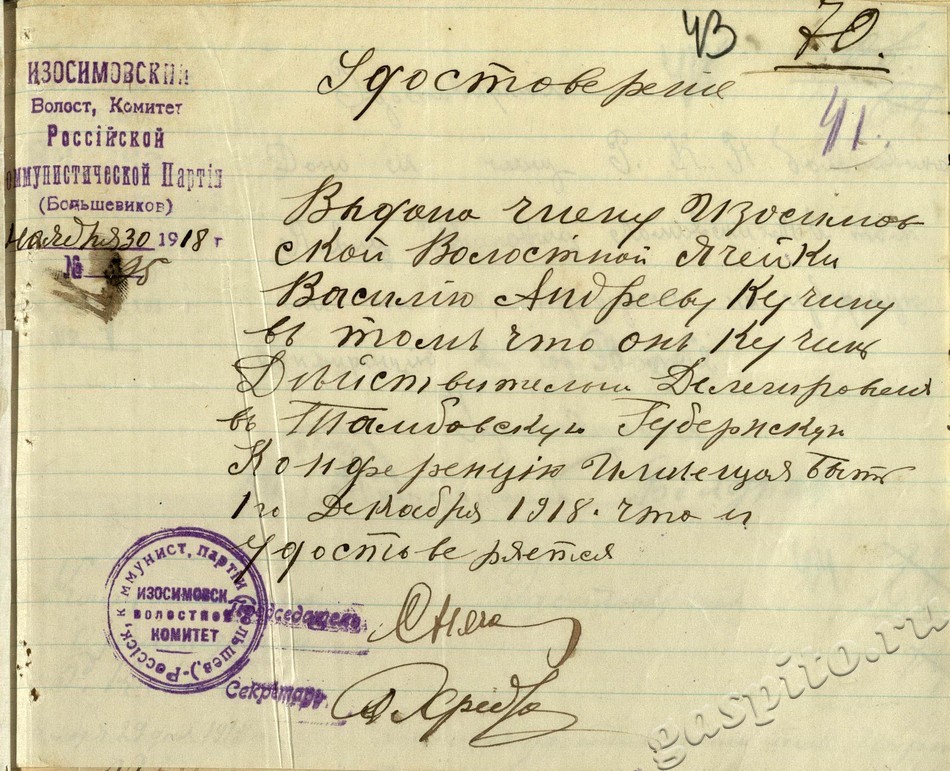 43 70.
41.
ИЗОСИМОВСКИЙ
Волост, Комитет
Россійской
оммунистической Партіи
(Большевиков)
Ноября 30 1918 г
№ 95
Удостоверение
Выдана члену Изосимов
ской Волостной Ячейки
Василію Андрееву Кучину
въ томъ что онъ Кучин
Дѣйствительно Делегирован
въ Тамбовскую Губернскую
Конференцію Имеющая быть
1го Декабря 1918. что и
удостоверяется
Председатель
Секретарь
Россійск, к ммунист, партіи (большев.)
ИЗОСИМОВСК.
ВОЛОСТНОЙ
КОМИТЕТ
gaspito.ru